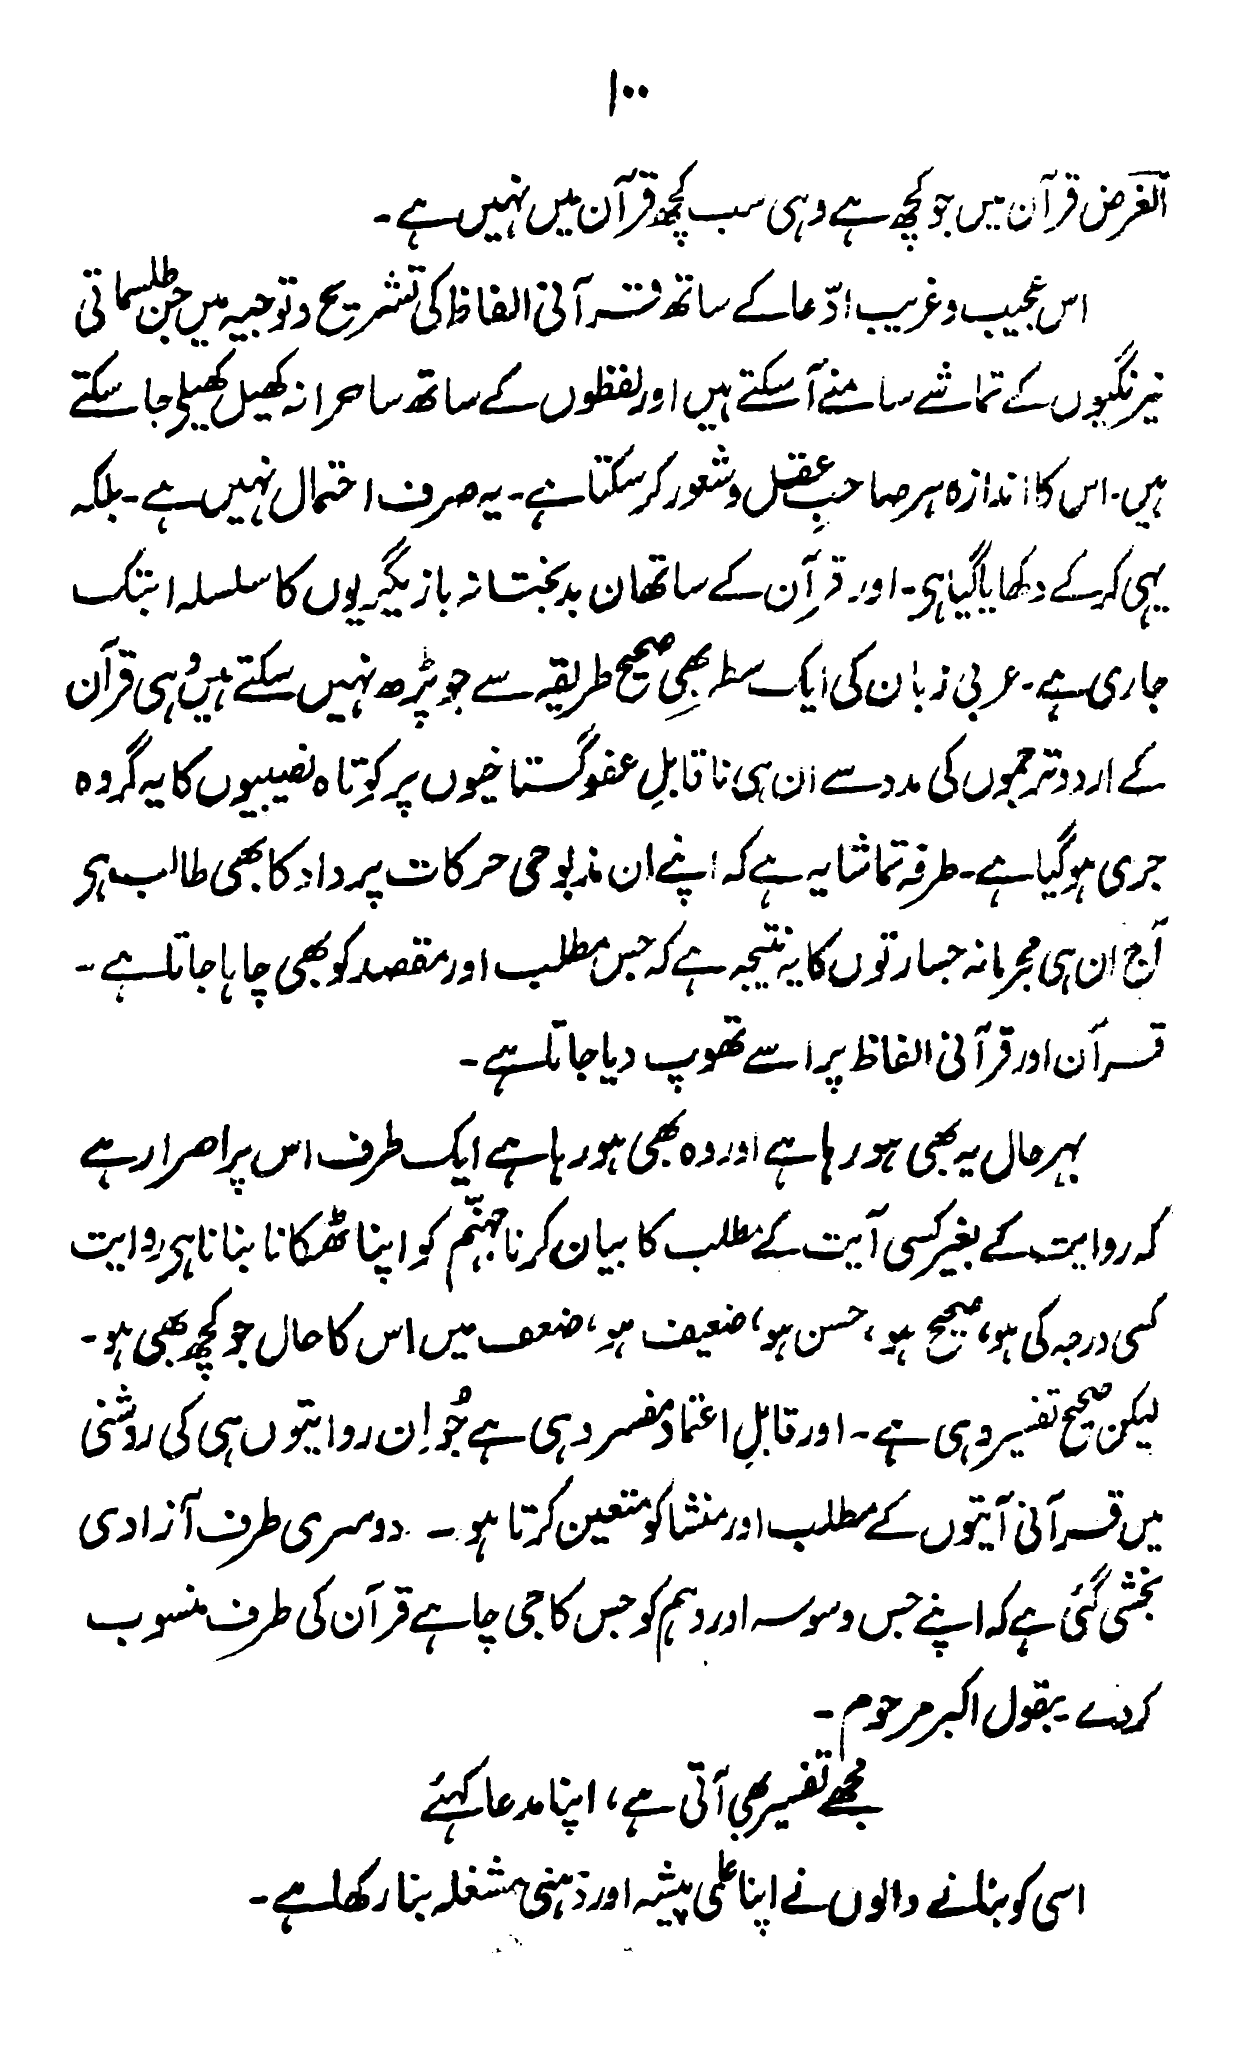 ۱۰۰
الغرض قرآن میں جو کچھ ہے وہی سب کچھ قرآن میں نہیں ہے۔
اس عجیب و غریب ادّعا کے ساتھ قرآنی الفاظ کی تشریح و توجیہ میں جن طلسماتی
نیرنگیوں کے تماشے سامنے آسکتے ہیں اور لفظوں کے ساتھ ساحرانہ کھیل کھیلے جاسکتے
ہیں۔ اس کا اندازہ ہر صاحبِ عقل و شعور کرسکتا ہے۔ یہ صرف احتمال نہیں ہے۔ بلکہ
یہی کرکے دکھایا گیا ہی۔ اور قرآن کے ساتھ ان بدبختانہ بازیگریوں کا سلسلہ ابتک
جاری ہے۔ عربی زبان کی ایک سطر بھی صحیح طریقہ سے جو پڑھ نہیں سکتے ہیں وُہی قرآن
کے اردو ترجموں کی مدد سے ان ہی ناقابلِ عفو گستاخیوں پر کوتاہ نصیبوں کا یہ گروہ
جری ہوگیا ہے۔ طرفہ تماشا یہ ہے کہ اپنے ان مذبوحی حرکات پر داد کا بھی طالب ہی
آج ان ہی مجرمانہ جسارتوں کا یہ نتیجہ ہے کہ جس مطلب اور مقصد کو بھی چاہا جاتا ہے۔
قرآن اور قرآنی الفاظ پر اسے تھوپ دیا جاتا ہے۔
بہرحال یہ بھی ہورہا ہے اور وہ بھی ہورہا ہے ایک طرف اس پر اصرار ہے
کہ روایت کے بغیر کسی آیت کے مطلب کا بیان کرنا جہنّم کو اپنا ٹھکانا بنانا ہی روایت
کسی درجہ کی ہو، صحیح ہو، حسن ہو، ضعیف ہو، ضعف میں اس کا حال جو کچھ بھی ہو۔
لیکن صحیح تفسیر وہی ہے۔ اور قابلِ اعتماد مفسر وہی ہے جُو اِن روایتوں ہی کی روشنی
میں قرآنی آیتوں کے مطلب اور منشا کو متعین کرتا ہو۔ دوسری طرف آزادی
بخشی گئی ہے کہ اپنے جس وسوسہ اور وہم کو جس کا جی چاہے قرآن کی طرف منسوب
کردے۔ بقول اکبر مرحوم۔
مجھے تفسیر بھی آتی ہے، اپنا مدعا کہئے
اسی کو بنانے والوں نے اپنا علمی پیشہ اور ذہنی مشغلہ بنا رکھا ہے۔